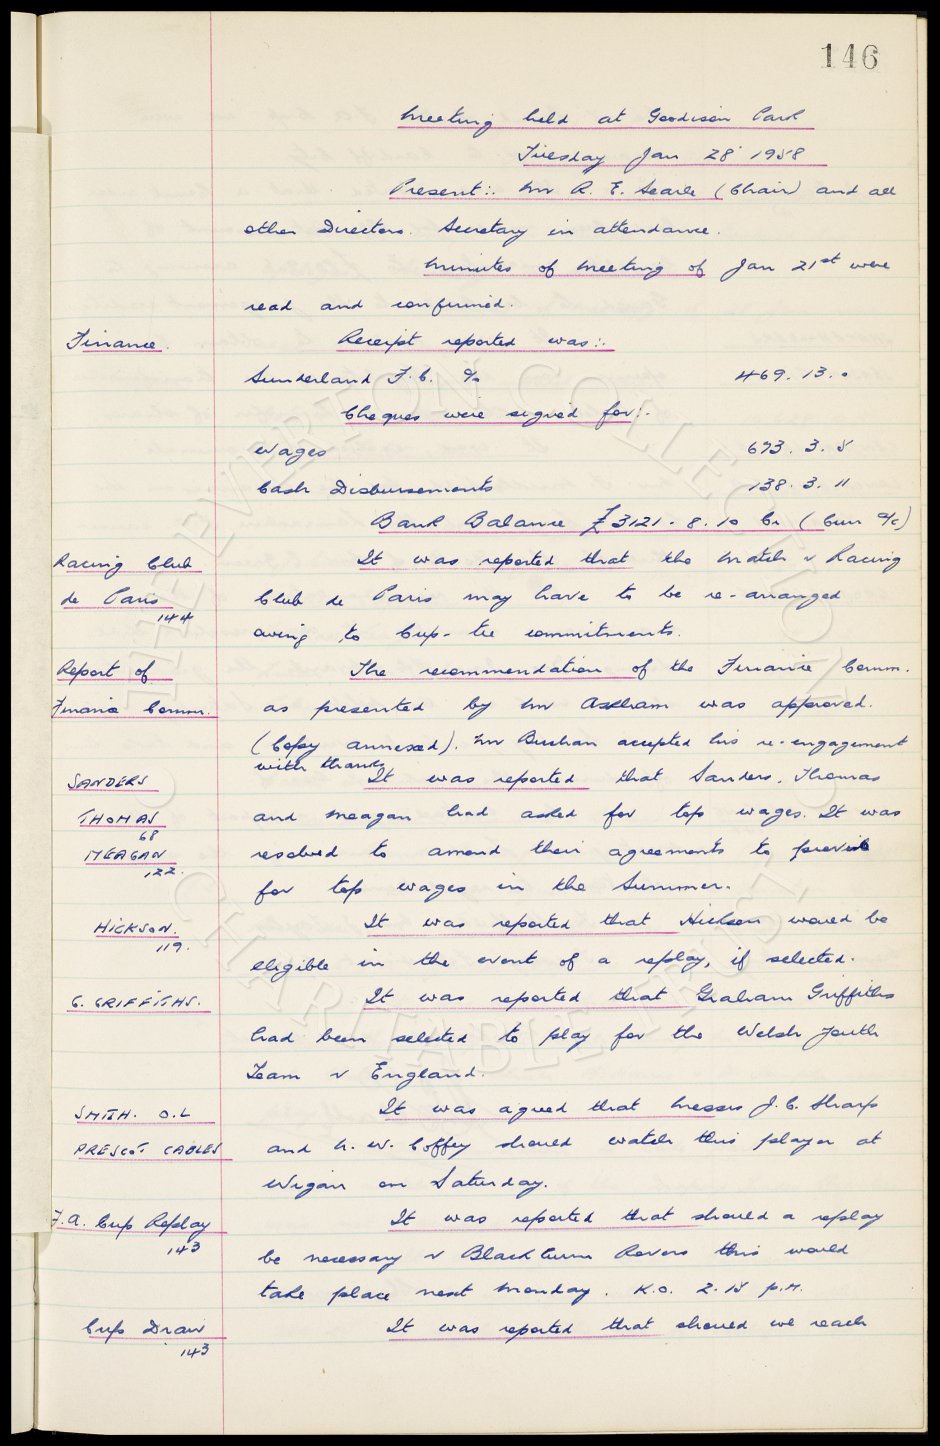 146
Meeting held at Goodison Park
Tuesday Jan 28 1958
Present:. Mr R. E. Searle (Chair) and all
other Directors. Secretary in attendance.
Minutes of Meeting of Jan 21st were
read and confirmed.
Finance.
Receipt reported was:.
Sunderland F.C. %
469. 13. 0
Cheques were signed for:-
Wages
673. 3. 5
Cash Disbursements
138. 3. 11
Bank Balance £3121. 8. 10 Cr (Curr a/c)
Racing Club
de Paris
144
It was reported that the match v Racing
Club de Paris may have to be re-arranged
owing to Cup-tie commitments.
Report of
Finance Comm.
The recommendation of the Finance Comm.
as presented by Mr Askham was approved.
(Copy annexed). Mr Buchan accepted his re-engagement
with thanks
SANDERS
THOMAS
68
MEAGAN
122.
It was reported that Sanders, Thomas
and Meagan had asked for top wages. It was
resolved to amend their agreements to provide
for top wages in the Summer.
HICKSON.
119.
It was reported that Hickson would be
eligible in the event of a replay, if selected.
G. GRIFFITHS.
It was reported that Graham Griffiths
had been selected to play for the Welsh Youth
Team v England.
SMITH. O.L
PRESCOT CABLES
It was agreed that Messrs J. C. Sharp
and h. W. Coffey should watch this player at
Wigan on Saturday.
F.A. Cup Replay
143
It was reported that should a replay
be necessary v Blackburn Rovers this would
take place next Monday. K.O. 2.15 p.m.
Cup Draw
143
It was reported that should we reach
© THE EVERTON COLLECTION CHARITABLE TRUST